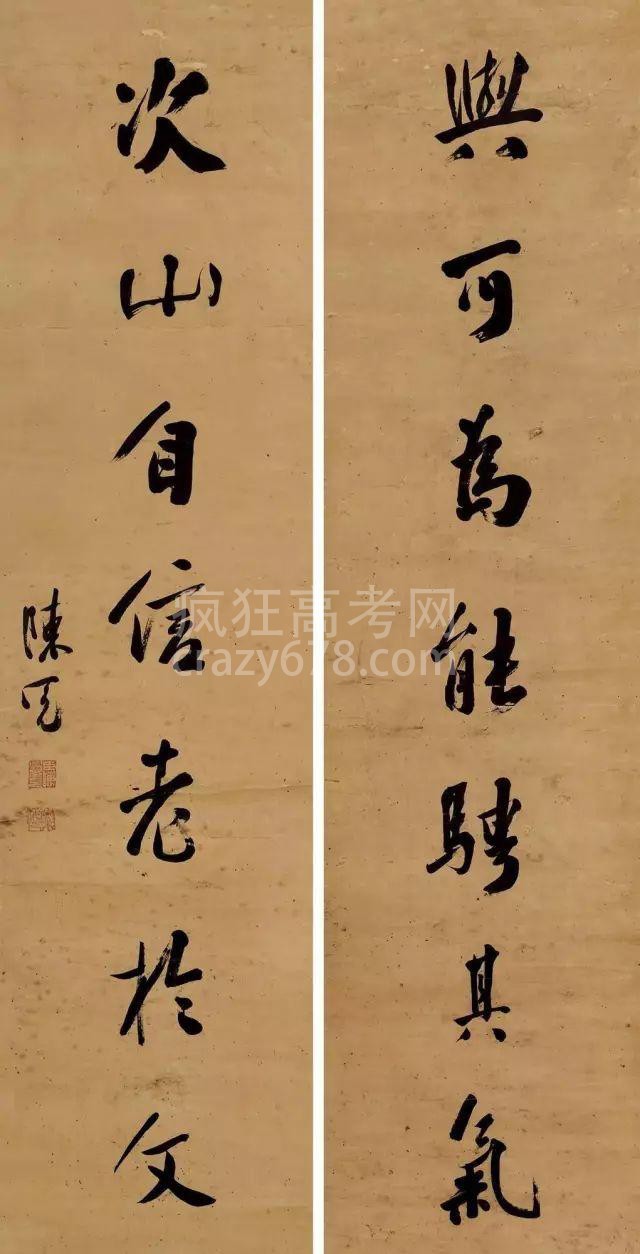 與可為能騁其氣
次山自信老於文
陳
疯狂高考网
crazy678.com